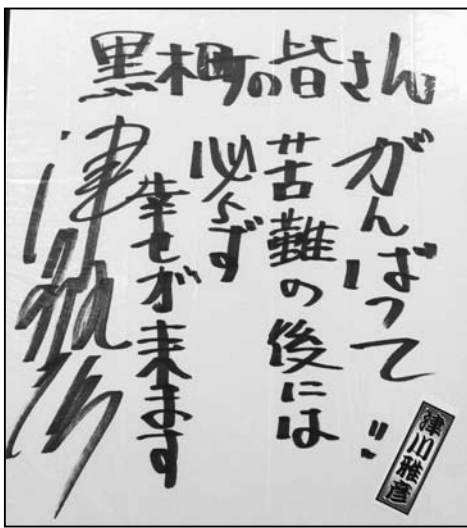 黒木町の皆さん
がんばって!!
苦難の後には
必らず
幸せが来ます
津川雅彦